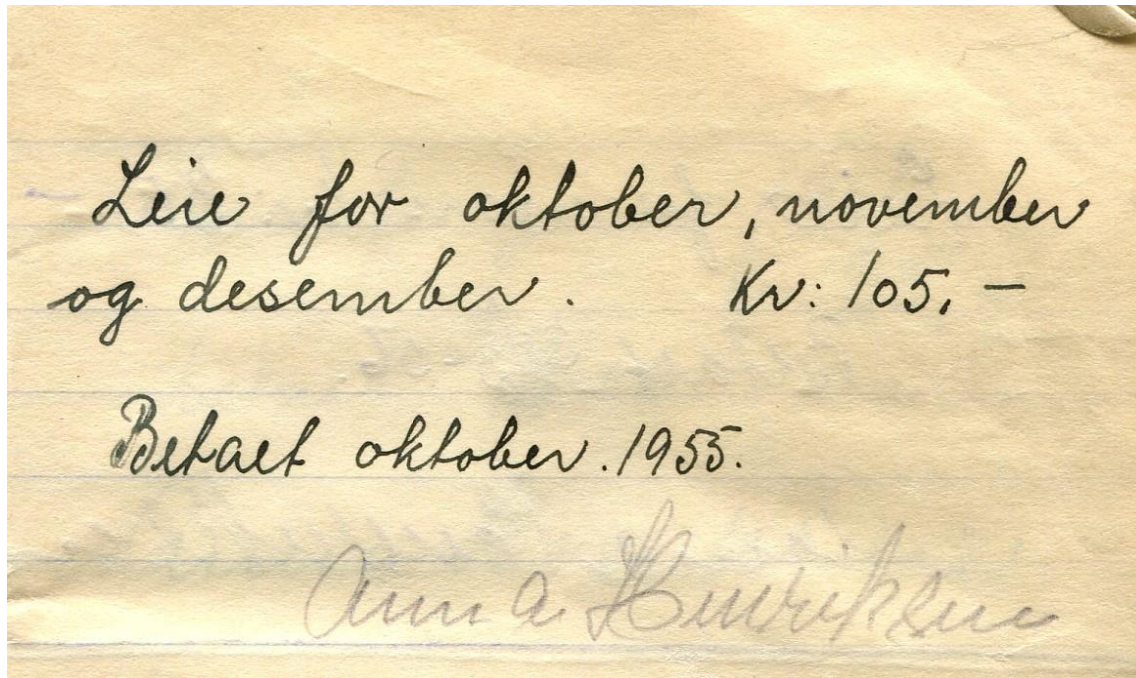 Leie for oktober, november
og desember. Kr: 105,-
Betalt oktober. 1955.
Anna Henriksen